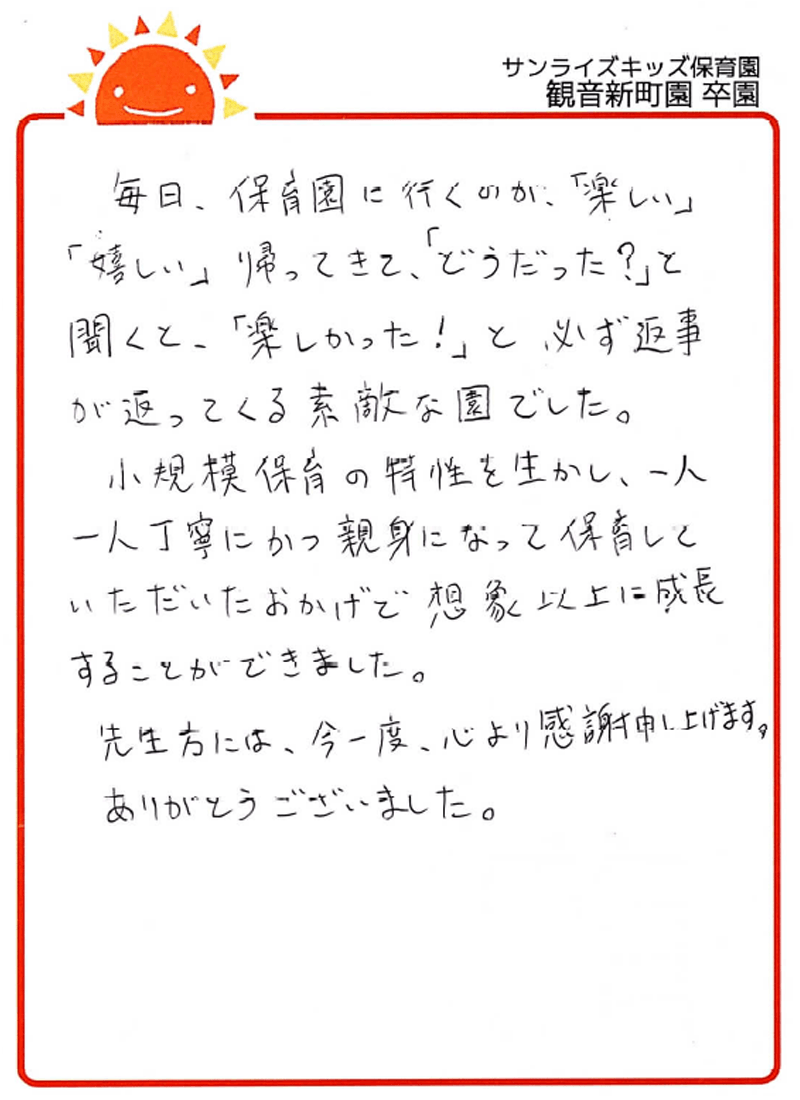 サンライズキッズ保育園
観音新町園 卒園
毎日、保育園に行くのが、「楽しい」
「嬉しい」帰ってきて、「どうだった?」と
聞くと、「楽しかった!」と必ず返事
が返ってくる素敵な園でした。
小規模保育の特性を生かし、一人
一人丁寧にかつ親身になって保育して
いただいたおかげで想象以上に成長
することができました。
先生方には、今一度、心より感謝申し上げます。
ありがとうございました。